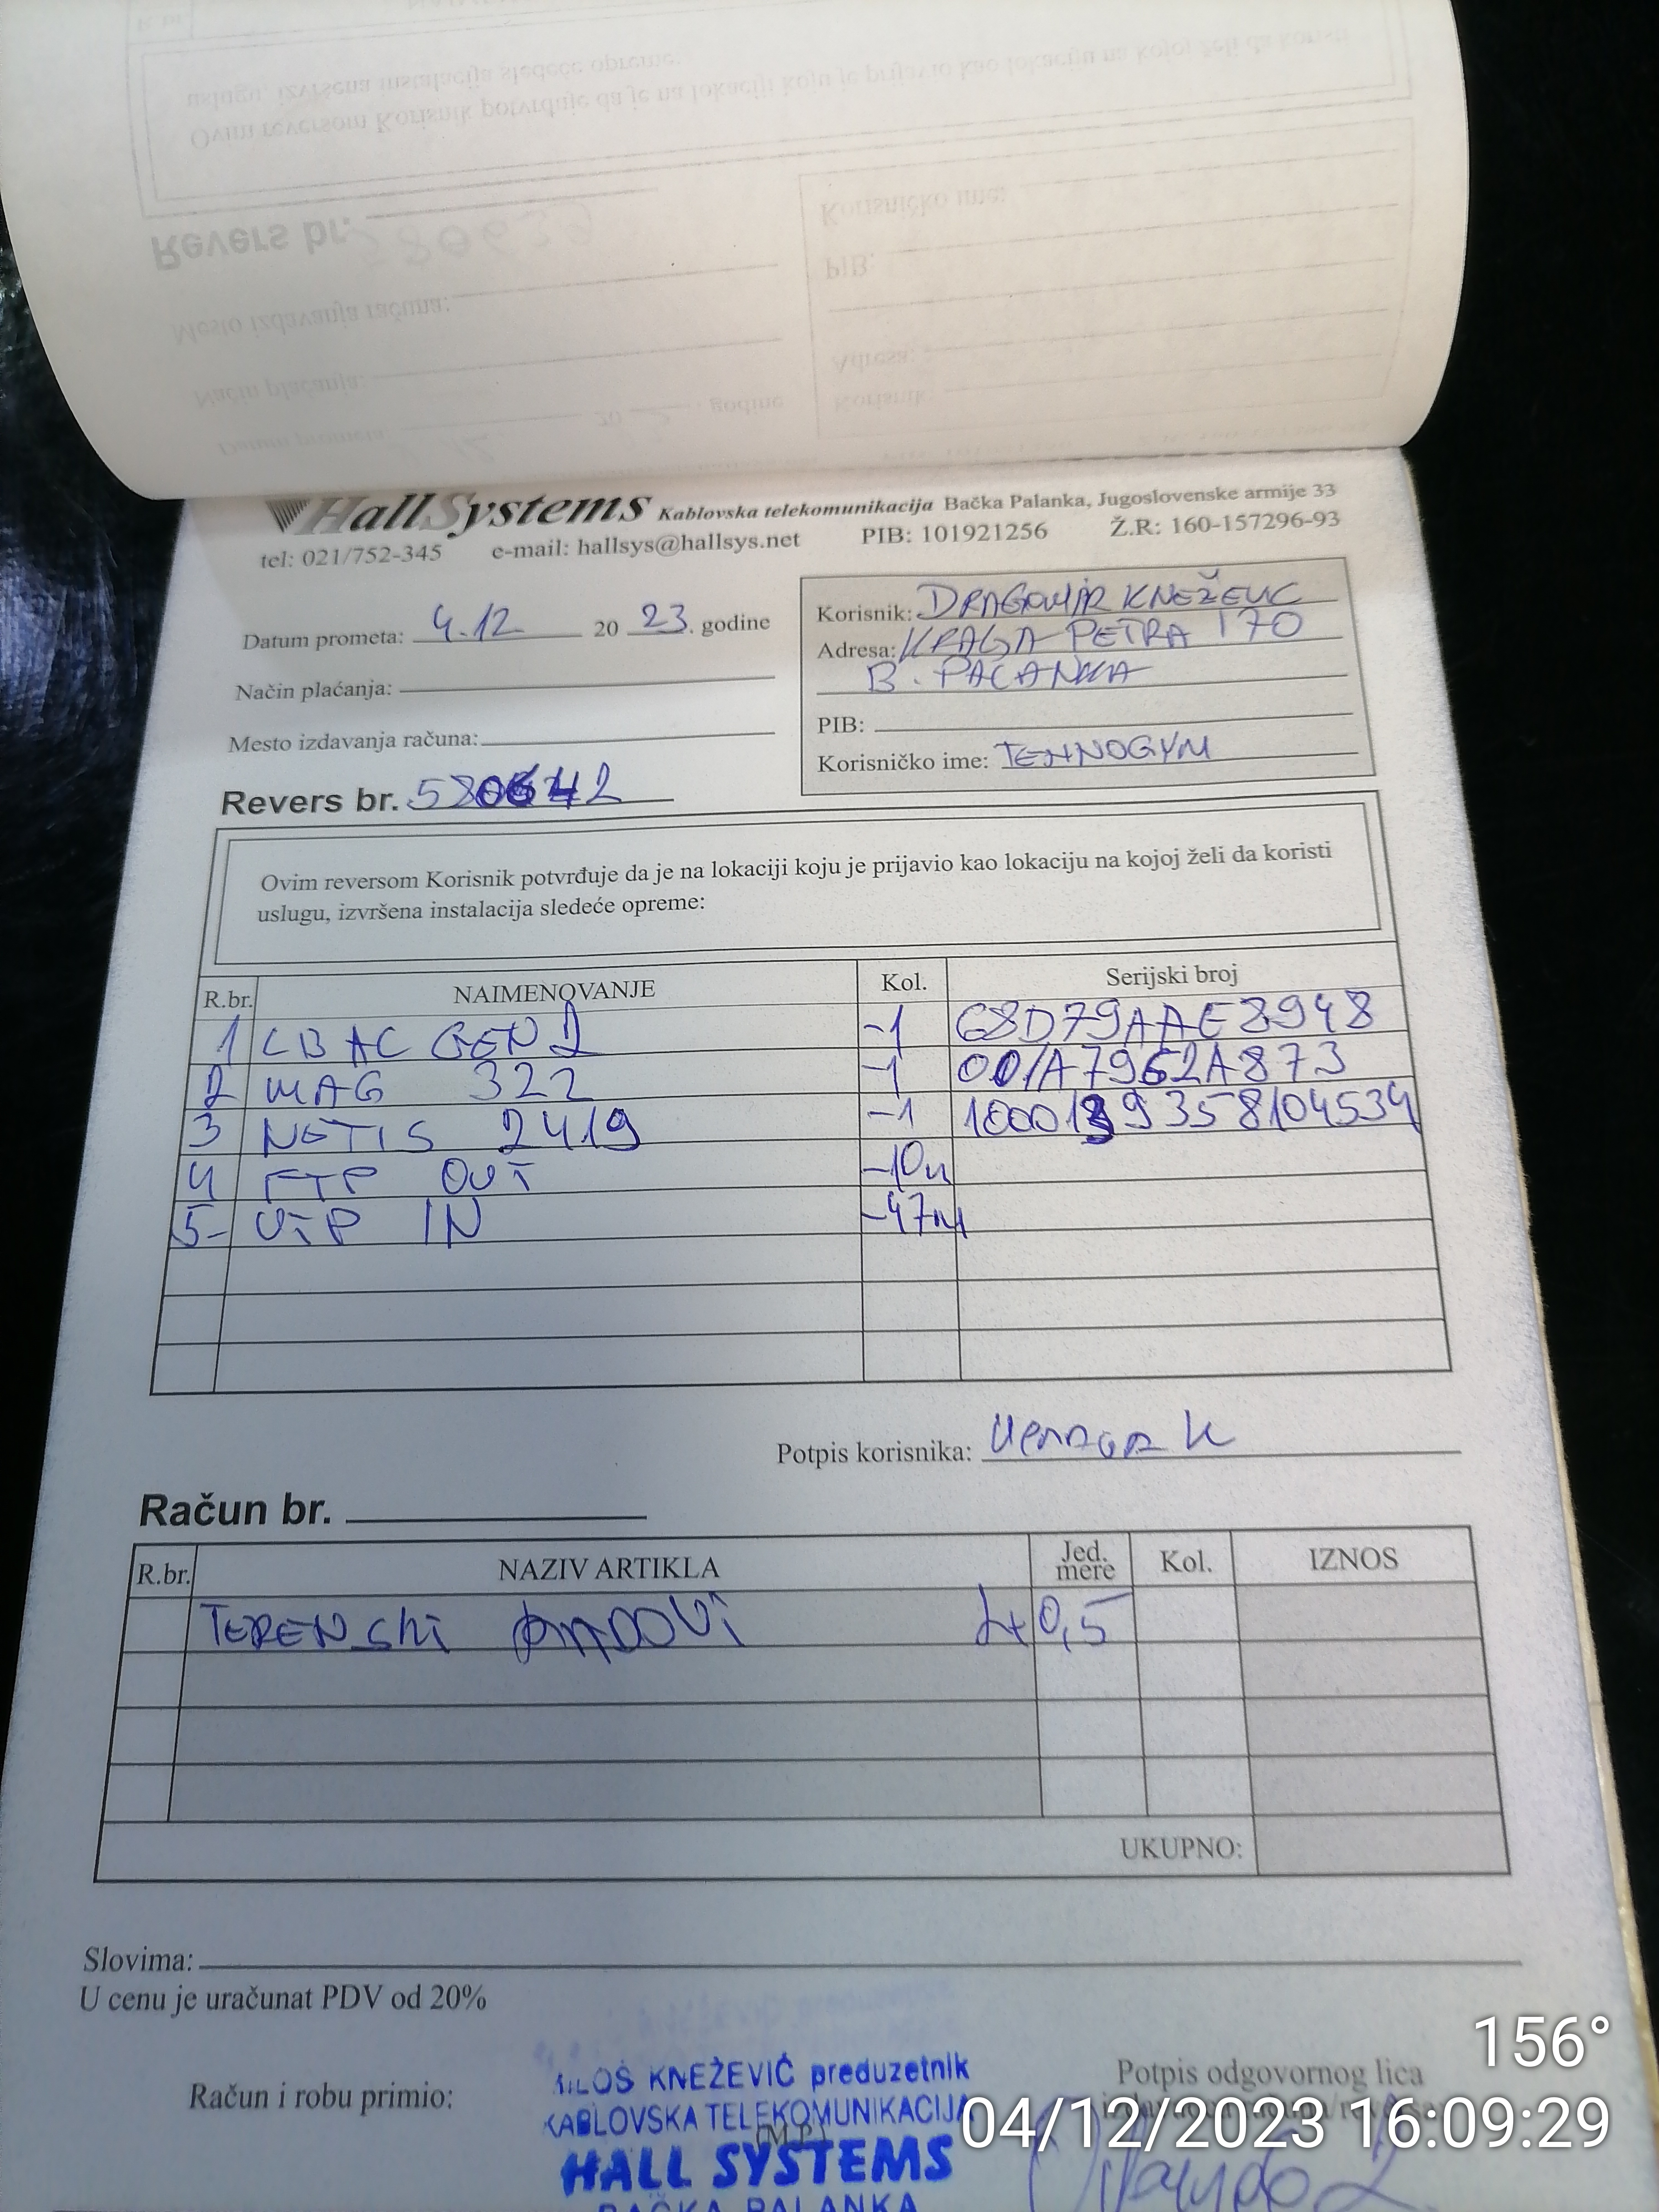 HallSystems Kablovska telekomunikacija Bačka Palanka, Jugoslovenske armije 33
tel: 021/752-345 e-mail: hallsys@hallsys.net PIB: 101921256 Ž.R: 160-157296-93
Datum prometa: 4.12 20 23. godine
Način plaćanja:
Mesto izdavanja računa:
Revers br. 580642
Korisnik: DRAGOMIR KNEŽEVIC
Adresa: KRAGA PETRA I 70
B. PALANKA
PIB:
Korisničko ime: TEHNOGYM
Ovim reversom Korisnik potvrđuje da je na lokaciji koju je prijavio kao lokaciju na kojoj želi da koristi
uslugu, izvršena instalacija sledeće opreme:
R.br. NAIMENOVANJE Kol. Serijski broj
1 LB AC GEN 2 -1 68D79AAE8948
2 MAG 322 -1 001A7962A873
3 NETIS 2419 -1
4 FTP OUT -10m
5- UTP IN -47m
Potpis korisnika:
Račun br.
R.br. NAZIV ARTIKLA Jed. mere Kol. IZNOS
TERENSKI RADOVI 2+0,5
UKUPNO:
Slovima:
U cenu je uračunat PDV od 20%
Račun i robu primio:
MILOŠ KNEŽEVIĆ preduzetnik
KABLOVSKA TELEKOMUNIKACIJA
(M.P.)
HALL SYSTEMS
BAČKA PALANKA
Potpis odgovornog lica
156°
04/12/2023 16:09:29